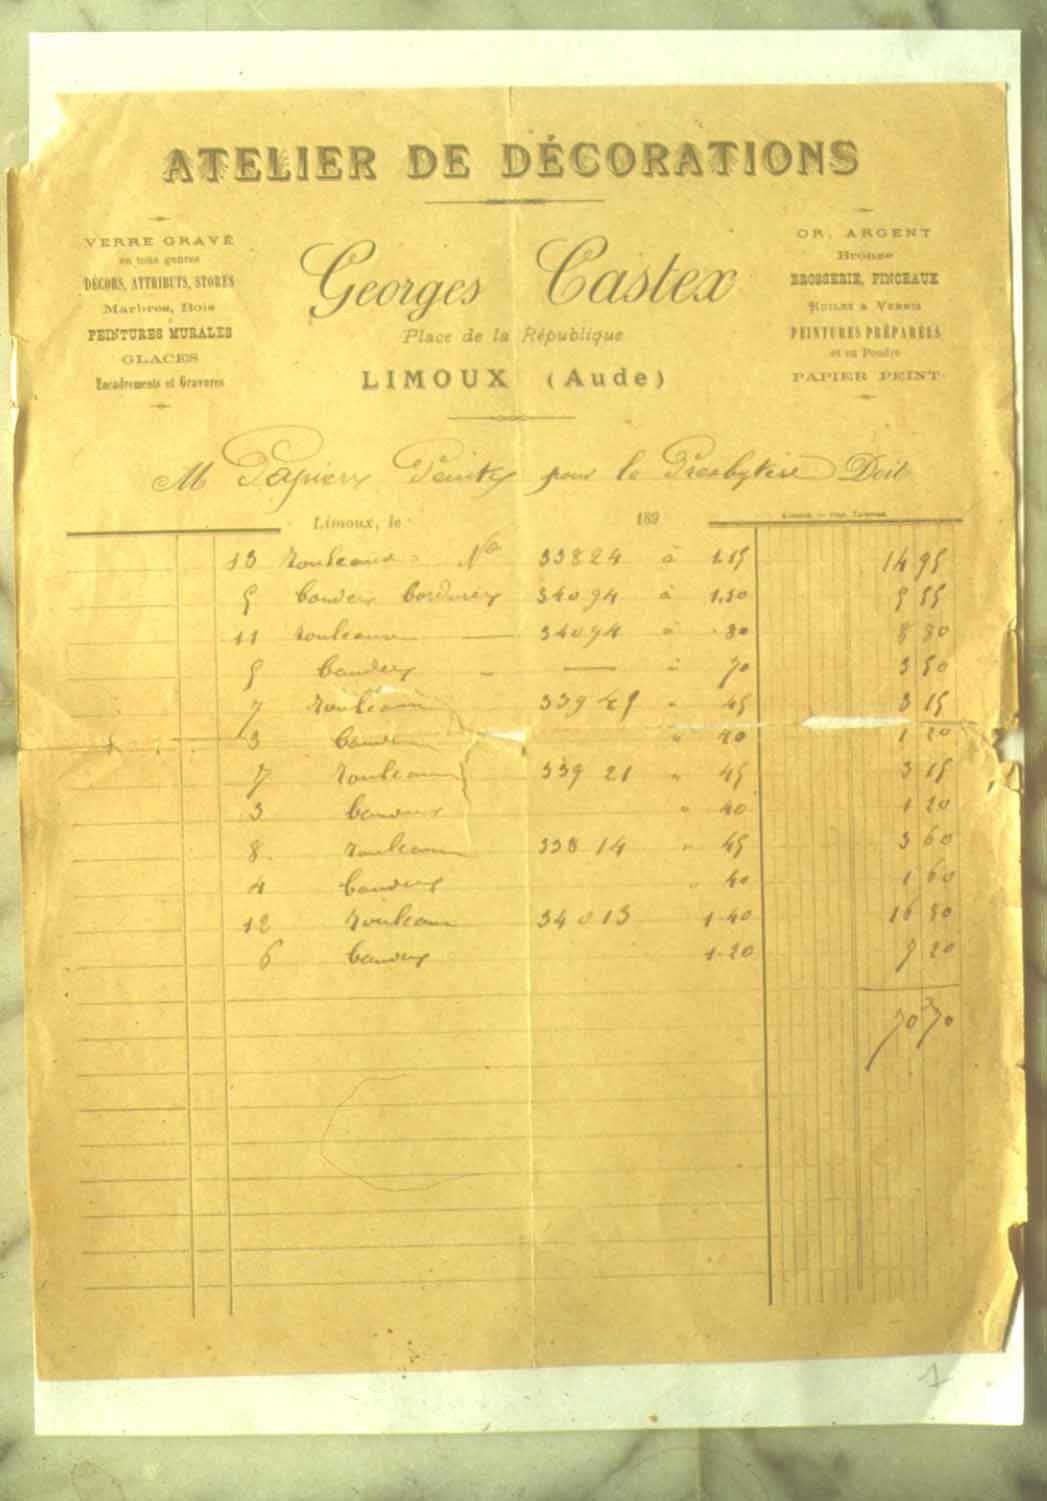 ATELIER DE DÉCORATIONS
VERRE GRAVÉ
en tous genres
DÉCORS, ATTRIBUTS, STORES
Marbres, Bois
PEINTURES MURALES
GLACES
Encadrements et Gravures
Georges Castex
Place de la République
LIMOUX (Aude)
OR, ARGENT
Bronze
BROSSERIE, PINCEAUX
HUILES & VERNIS
PEINTURES PRÉPARÉES
et en Poudre
PAPIER PEINT
M Papiers Peints pour le Presbytère Doit
Limoux, le 189
13 rouleaux No 33824 à 1.15 14 95
5 bandes bordures 34094 à 1.10 5 55
11 rouleaux — 34094 à .80 8 80
5 bandes — à 70 3 50
7 rouleaux 33945 " 45 3 15
3 bandes " 40 1 20
7 rouleaux 33921 " 45 3 15
3 bandes " 40 1 20
8 rouleaux 33814 " 45 3 60
4 bandes " 40 1 60
12 rouleaux 34013 1.40 16 80
6 bandes 1.20 7 20
70 70
1